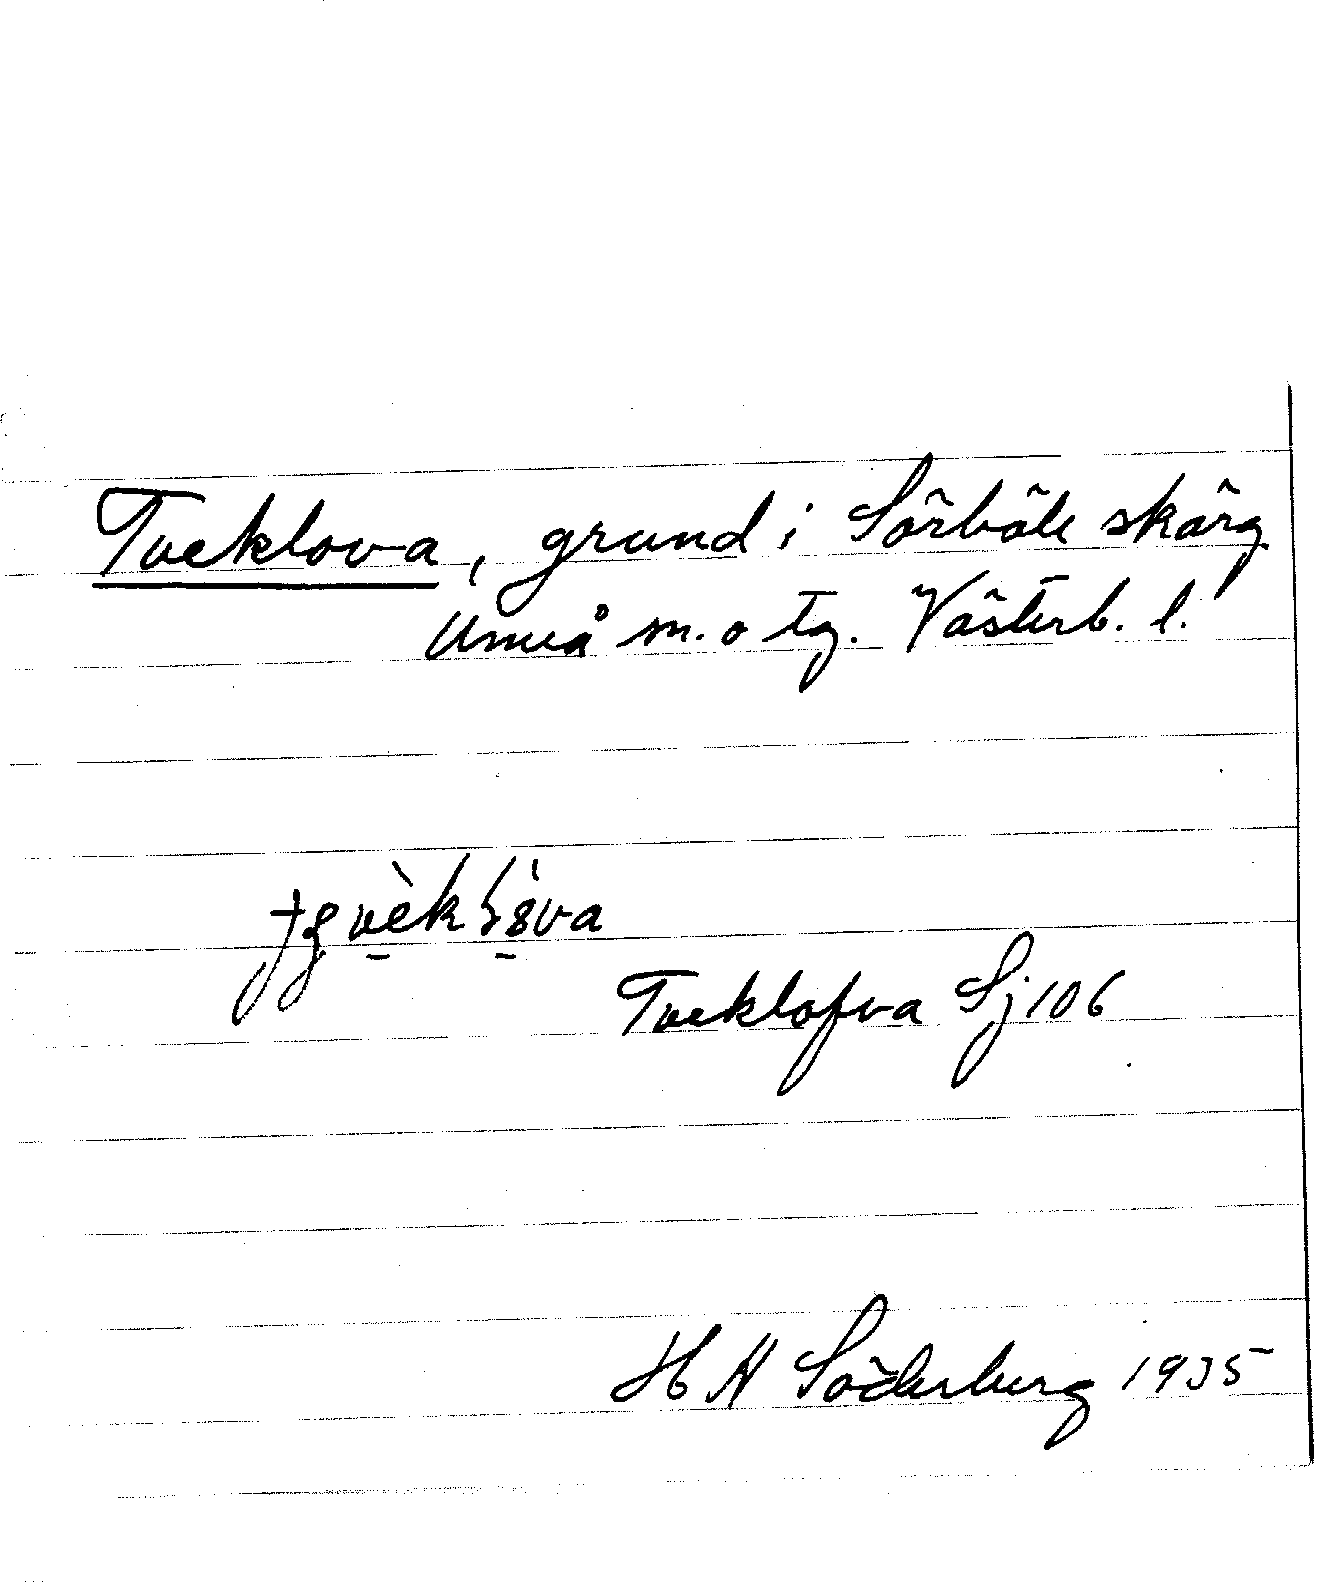 Tveklova, grund i Sörböle skärg
Umeå m. o tg. Västerb. l.
Tveklofva Sj 106
H N Söderberg 1935